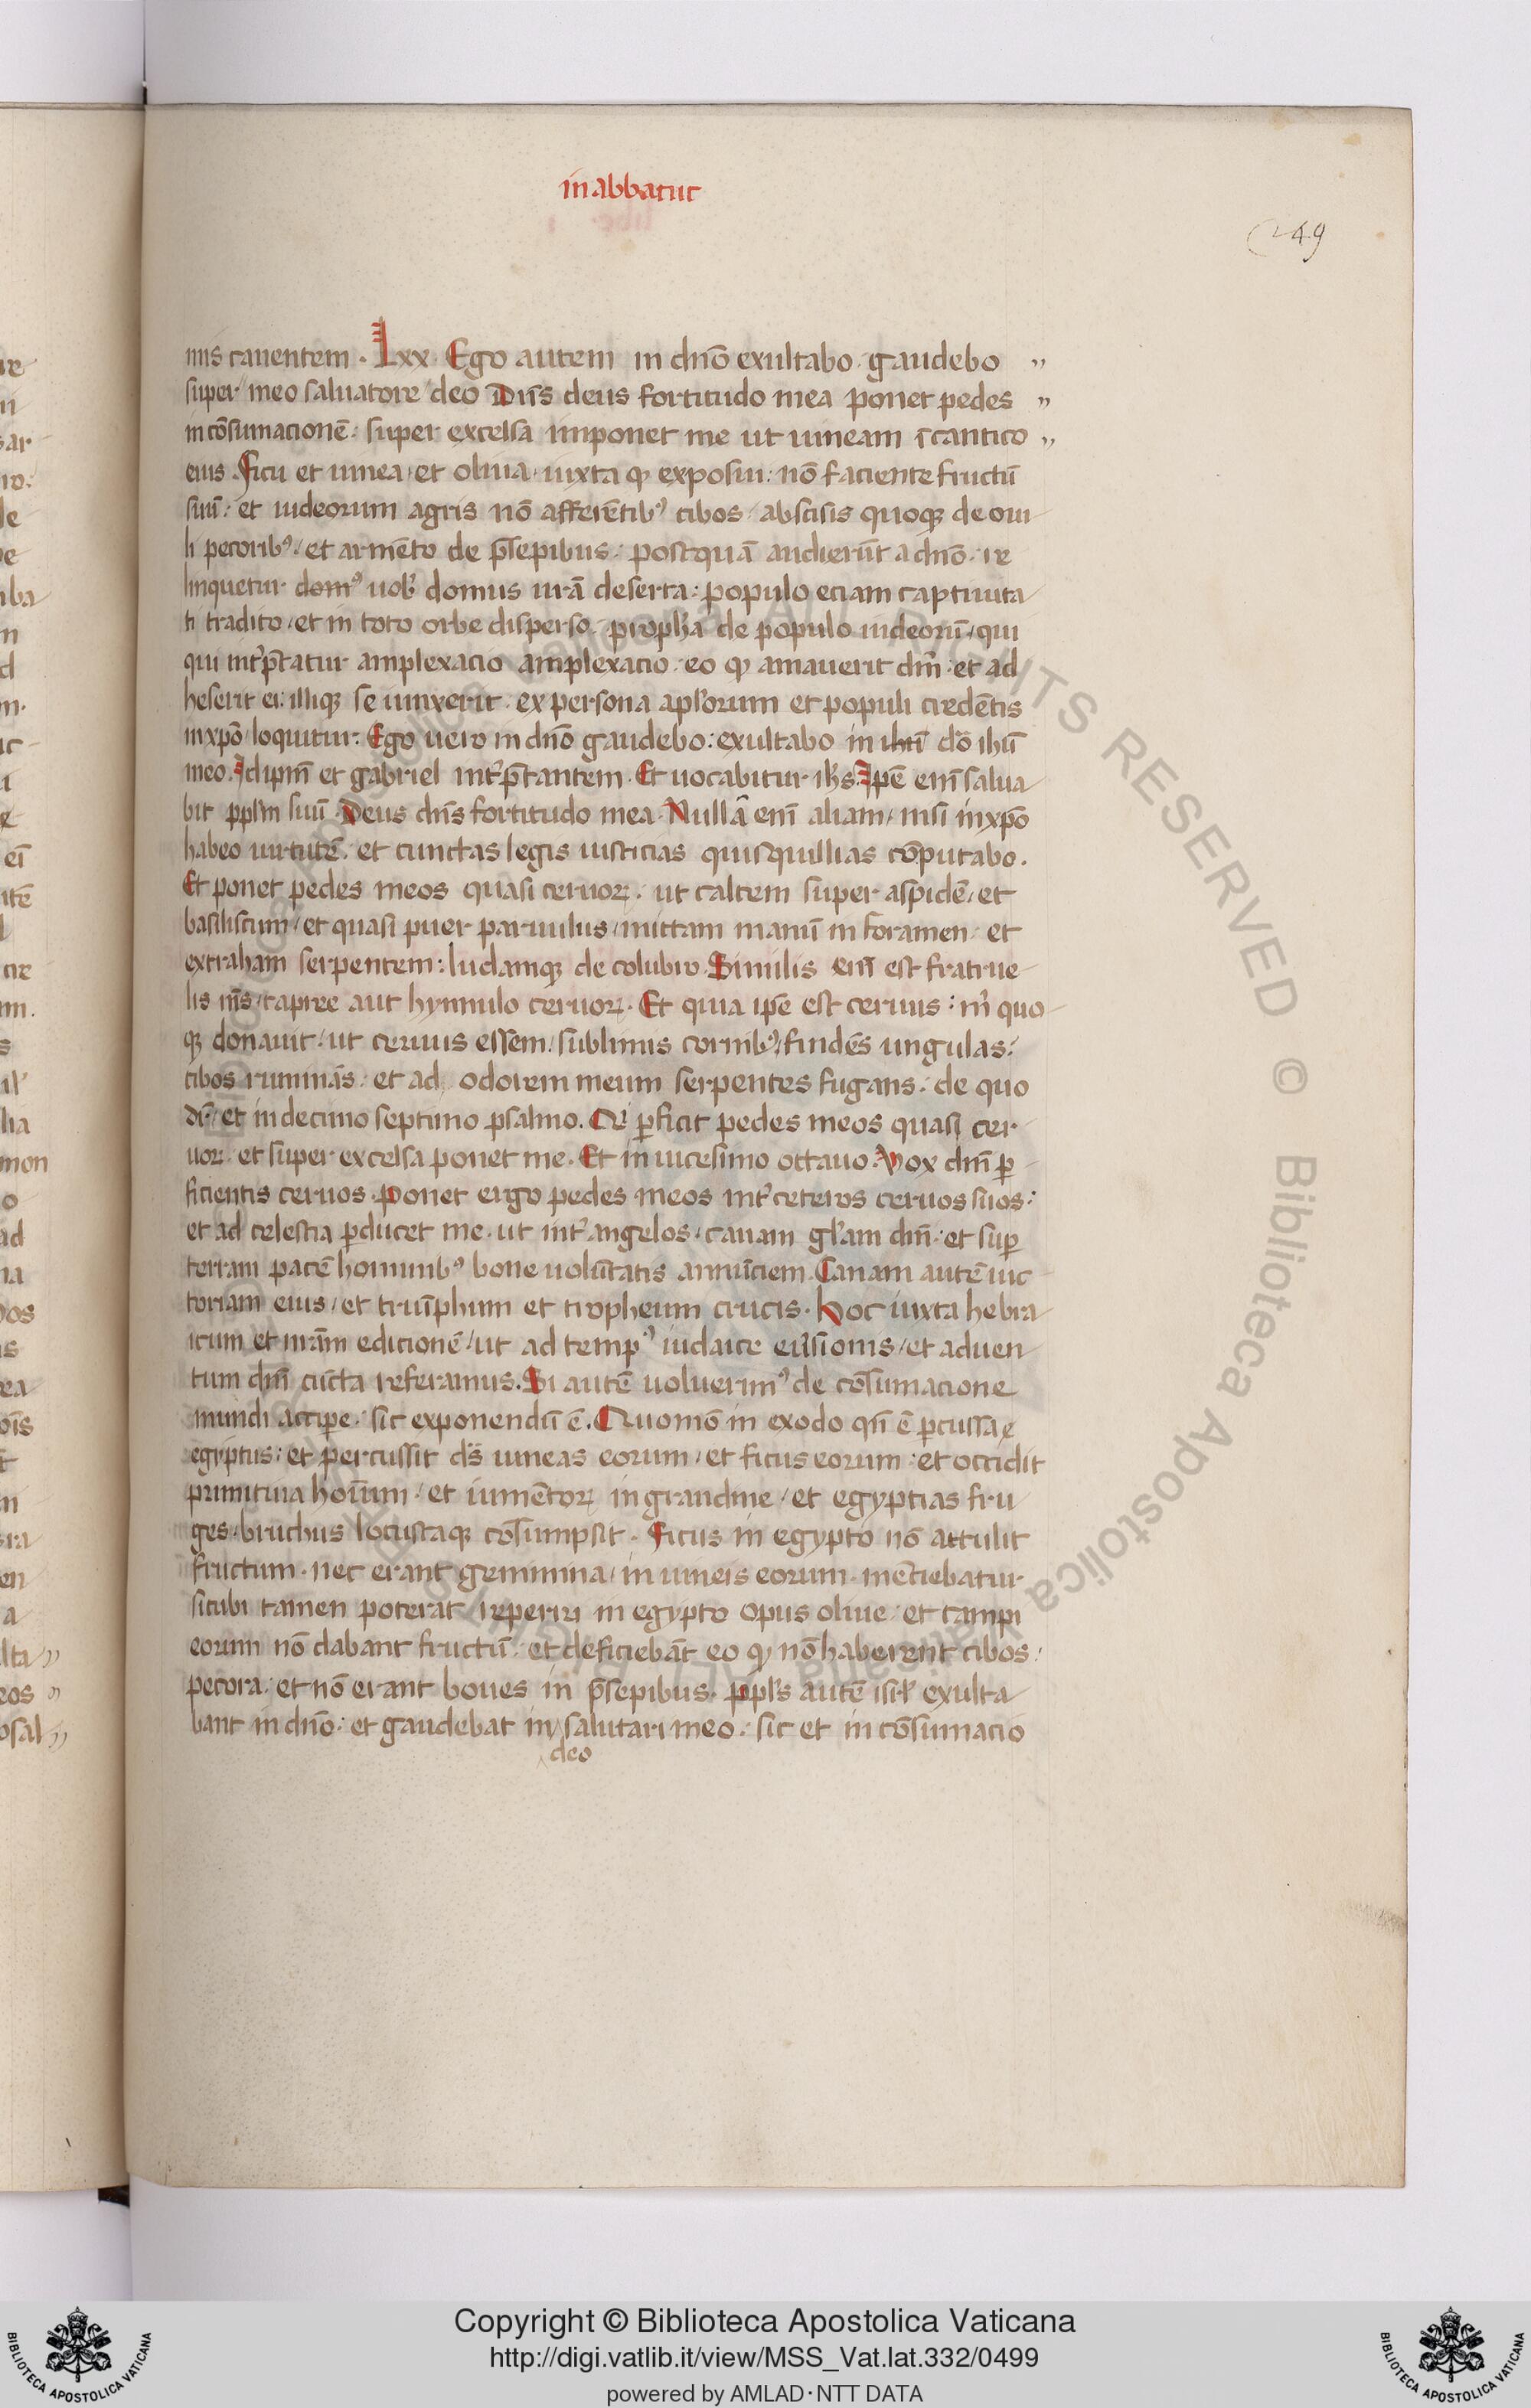 in abbatuc
249
niis canentem . Lxx . Ego autem in dn̄o exultabo . gaudebo „
super meo saluatore deo Dn̄s deus fortitudo mea ponet pedes „
in cōsumacionē : super excelsa imponet me ut uincam ī cantico „
eius . Ficu et uinea / et oliua / iuxta ꝙ exposui : nō faciente fructū
suū : et iudeorum agris nō afferētibꝰ cibos / abscisis quoqꝫ de oui
li pecoribꝰ / et armēto de p̄sepibus : postquā audierūt a dn̄o . re
linquetur domꝰ uob̓ domus ur̄a deserta : populo eciam captiuita
ti tradito / et in toto orbe disperso . proph̓a de populo iudeorū / qui
qui int̓p̄tatur amplexacio amplexacio . eo ꝙ amauerit dm̄ . et ad
heserit ei : illiqꝫ se iunxerit . ex persona apl̓orum et populi credētis
in xp̄o loquitur : Ego uero in dn̄o gaudebo : exultabo in ih̄u dō ih̄u
meo . Id ipm̄ et gabriel int̓p̄tantem . Et uocabitur ih̓s . Ip̄e enī salua
bit ppl̓m suū . Deus dn̄s fortitudo mea . Nullā enī aliam / nisi in xp̄o
habeo uirtutē . et cunctas legis iusticias quisquillias cōputabo .
Et ponet pedes meos quasi ceruoꝝ . ut calcem super aspidē / et
basiliscum / et quasi puer paruulus / mittam manū in foramen / et
extraham serpentem : ludamqꝫ de colubro . Similis enī est fratrue
lis m̄s / capree aut hynnulo ceruoꝝ . Et quia ip̄e est ceruus : m̓ quo
qꝫ donauit / ut ceruus essem / sublimis cornibꝰ / findēs ungulas :
cibos ruminās : et ad odorem meum serpentes fugans . de quo
dr̄ / et in decimo septimo psalmo . Qi ꝑficit pedes meos quasi cer
uoꝝ . et super excelsa ponet me . Et in uicesimo octauo . Vox dm̄ ꝑ
ficientis ceruos . Ponet ergo pedes meos int̓ ceteros ceruos suos :
et ad celestia ꝑducet me . ut int̓ angelos / canam gl̓am dm̄ : et suꝑ
terram pacē hominibꝰ bone uolūtatis annūciem . Canam autē uic
toriam eius / et triūphum et tropheum crucis . Hoc iuxta hebra
icum et nr̄am edicionē / ut ad tempꝰ iudaice eu̓sionis / et aduen
tum dm̄ cūcta referamus . Si autē uoluerimꝰ de cōsumacione
mundi accipe / sic exponendū ē . Quomō in exodo qn̄ ē ꝑcussa
egyptus : et percussit ds̄ uineas eorum / et ficus eorum : et occidit
primitiua hoīum / et iumētoꝝ in grandine / et egyptias fru
ges / bruchus locustaqꝫ cōsumpsit . Ficus in egypto nō attulit
fructum . nec erant gemmina / in uineis eorum . mēciebatur
sicubi tamen poterat / reperiri in egypto opus oliue / et campi
eorum nō dabant fructū : et deficiebāt eo ꝙ nō haberent cibos /
pecora : et nō erant boues in p̄sepibus . ppl̓s autē isrl̓ exulta
bant in dn̄o : et gaudebat in salutari meo : sic et in cōsumacio
deo
Copyright © Biblioteca Apostolica Vaticana
http://digi.vatlib.it/view/MSS_Vat.lat.332/0499
powered by AMLAD·NTT DATA